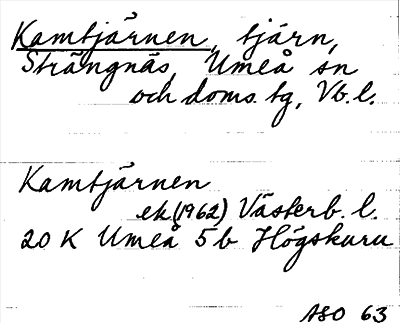 Kamtjärnen, tjärn,
Strängnäs, Umeå sn
och doms. tg, Vb. l.
Kamtjärnen
ek (1962) Västerb. l.
20 K Umeå 5b Högskuru
ASO 63